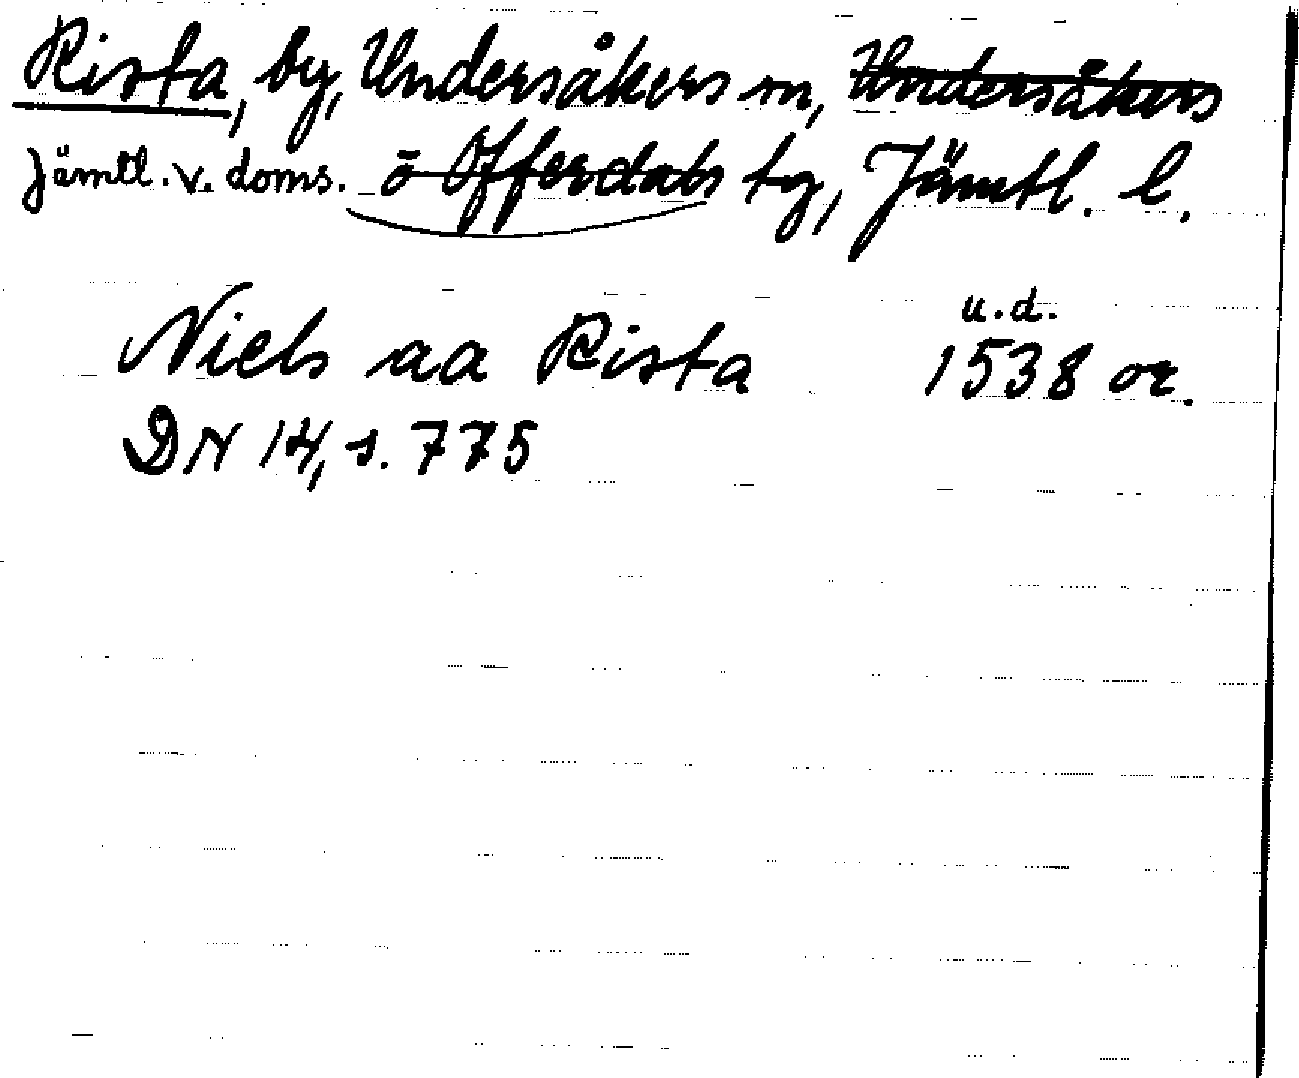 Rista, by, Undersåkers sn, Undersåkers
Jämtl. v. doms. o Offerdals tg, Jämtl. l.
Niels aa Rista
u.d.
1538 or.
DN 14, s. 775